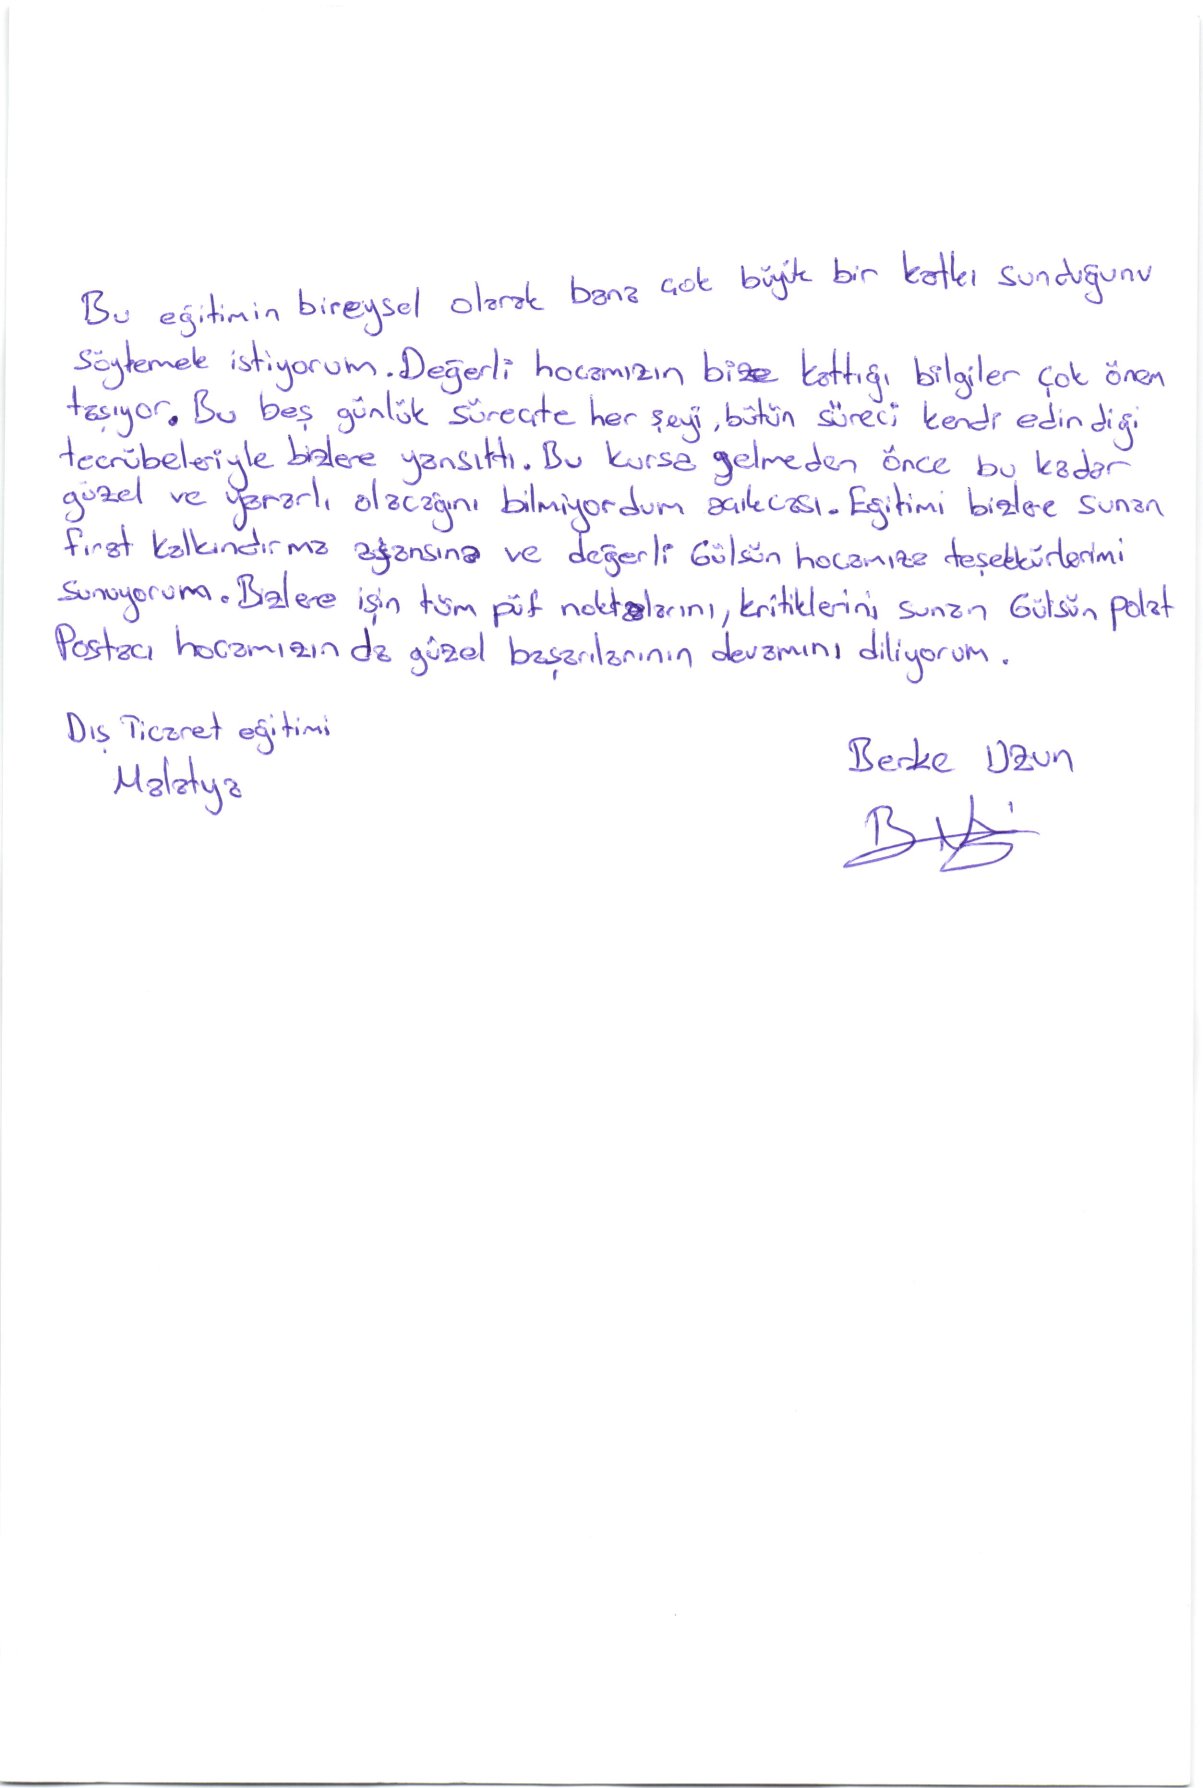 Bu eğitimin bireysel olarak bana çok büyük bir katkı sunduğunu
söylemek istiyorum. Değerli hocamızın bize kattığı bilgiler çok önem
taşıyor. Bu beş günlük süreçte her şeyi, bütün süreci kendi edindiği
tecrübeleriyle bizlere yansıttı. Bu kursa gelmeden önce bu kadar
güzel ve yararlı olacağını bilmiyordum açıkcası. Eğitimi bizlere sunan
fırat kalkındırma ajansına ve değerli Gülsün hocamıza teşekkürlerimi
sunuyorum. Bizlere işin tüm püf noktalarını, kritiklerini sunan Gülsün polat
Postacı hocamızın da güzel başarılarının devamını diliyorum.
Dış Ticaret eğitimi
Berke Uzun
Malatya